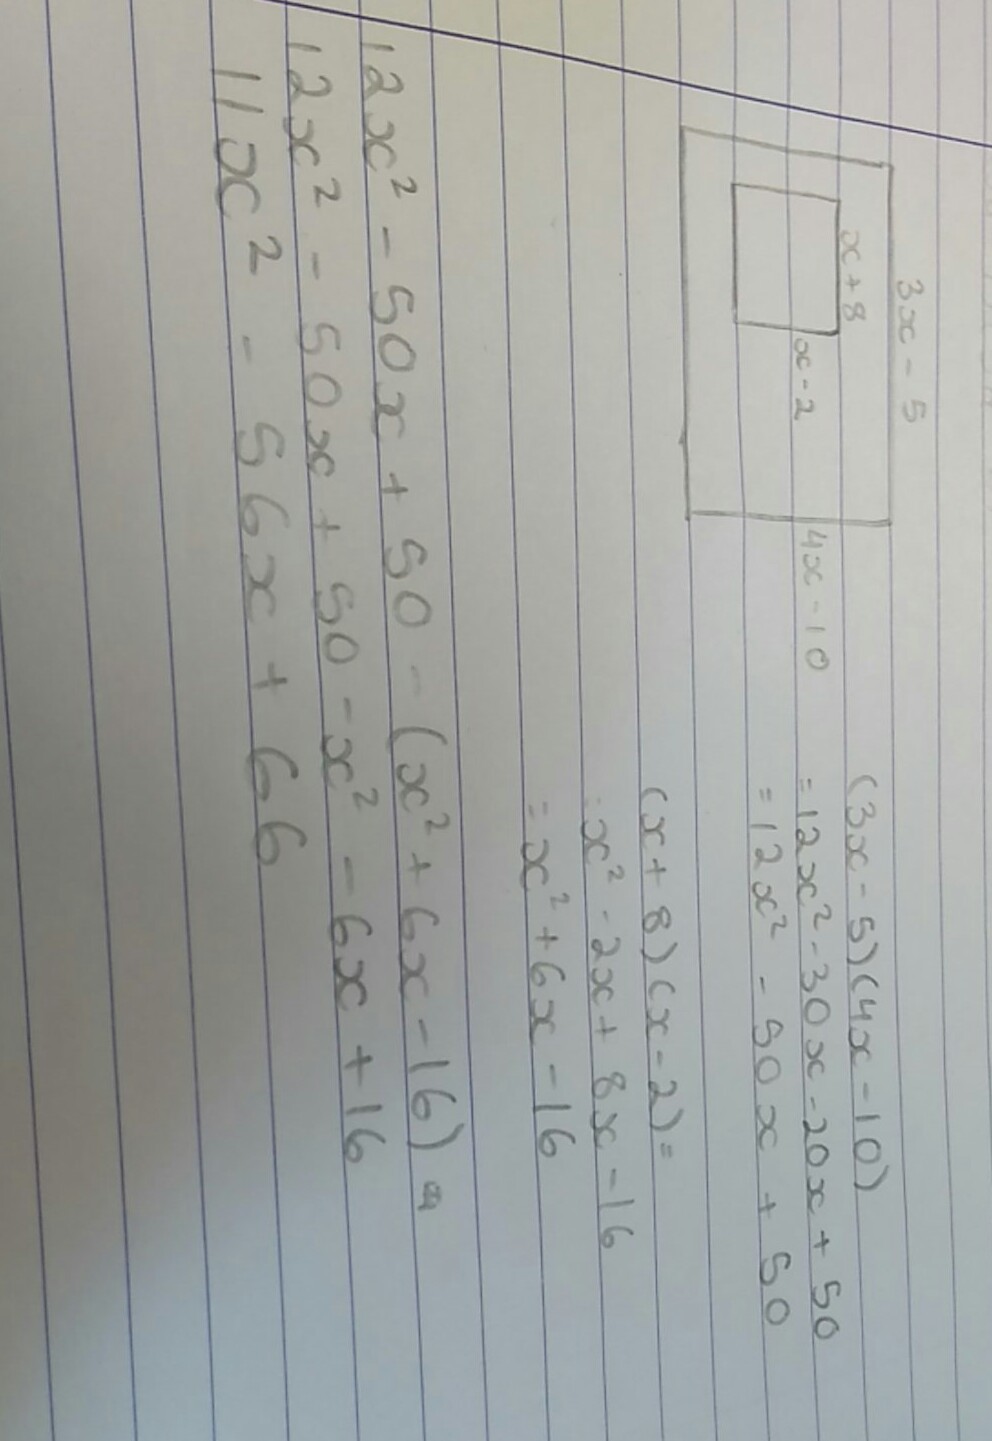 3x - 5
x + 8
x - 2
4x - 10
(3x - 5)(4x - 10)
= 12x² - 30x - 20x + 50
= 12x² - 50x + 50
(x + 8)(x - 2) =
: x² - 2x + 8x - 16
= x² + 6x - 16
12x² - 50x + 50 - (x² + 6x - 16) =
12x² - 50x + 50 - x² - 6x + 16
11x² - 56x + 66